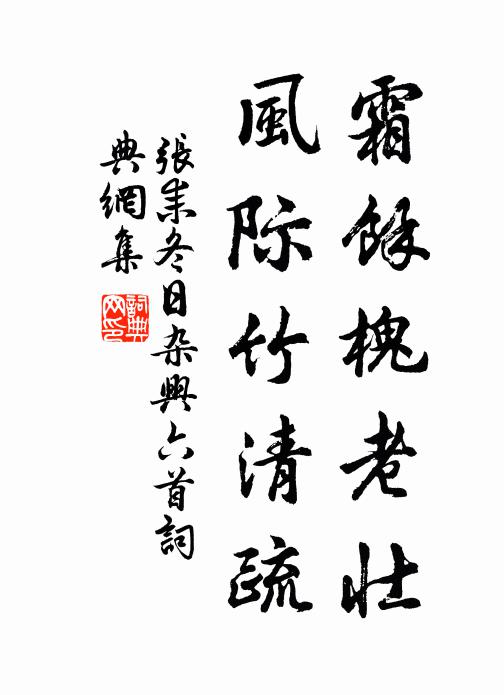 霜餘槐老壯
風际竹清疏
張耒冬日杂興六首詞
典網集
詞典网印